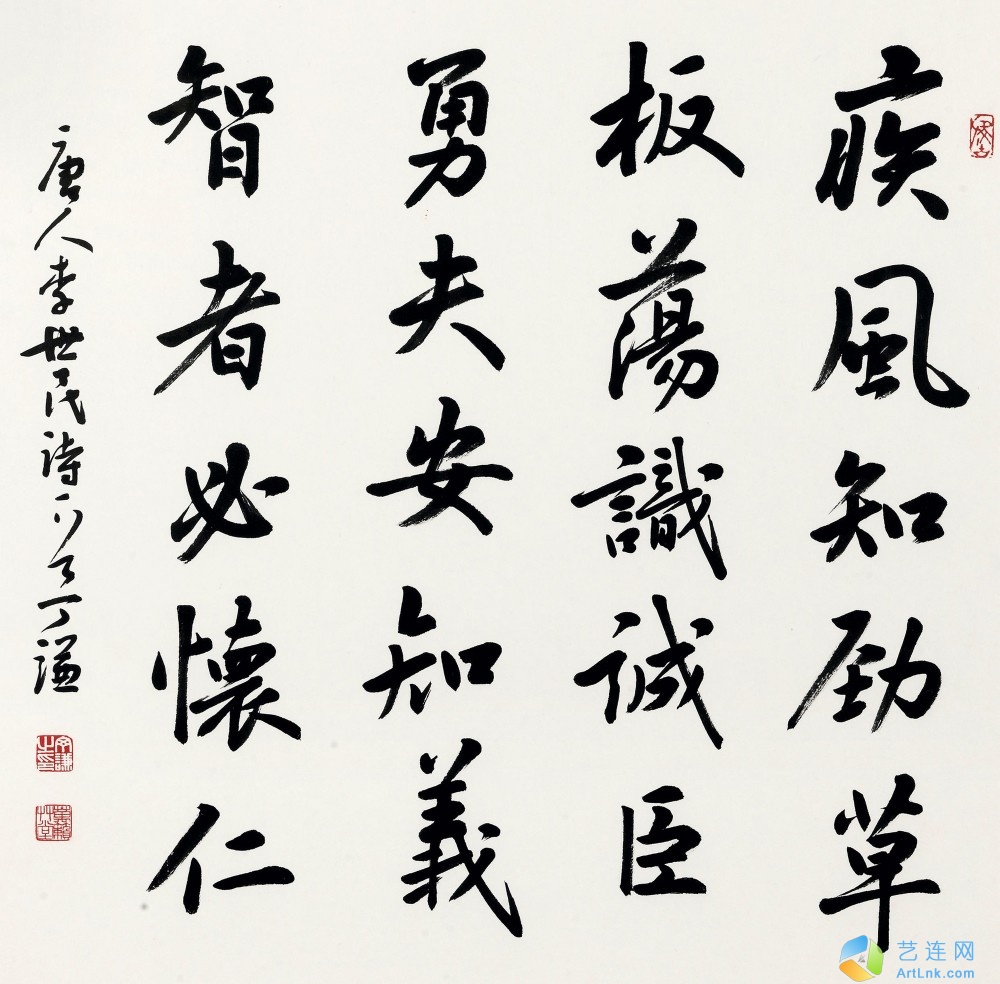 疾風知勁草
板蕩識誠臣
勇夫安知義
智者必懷仁
唐人李世民詩
艺连网
ArtLnk.com